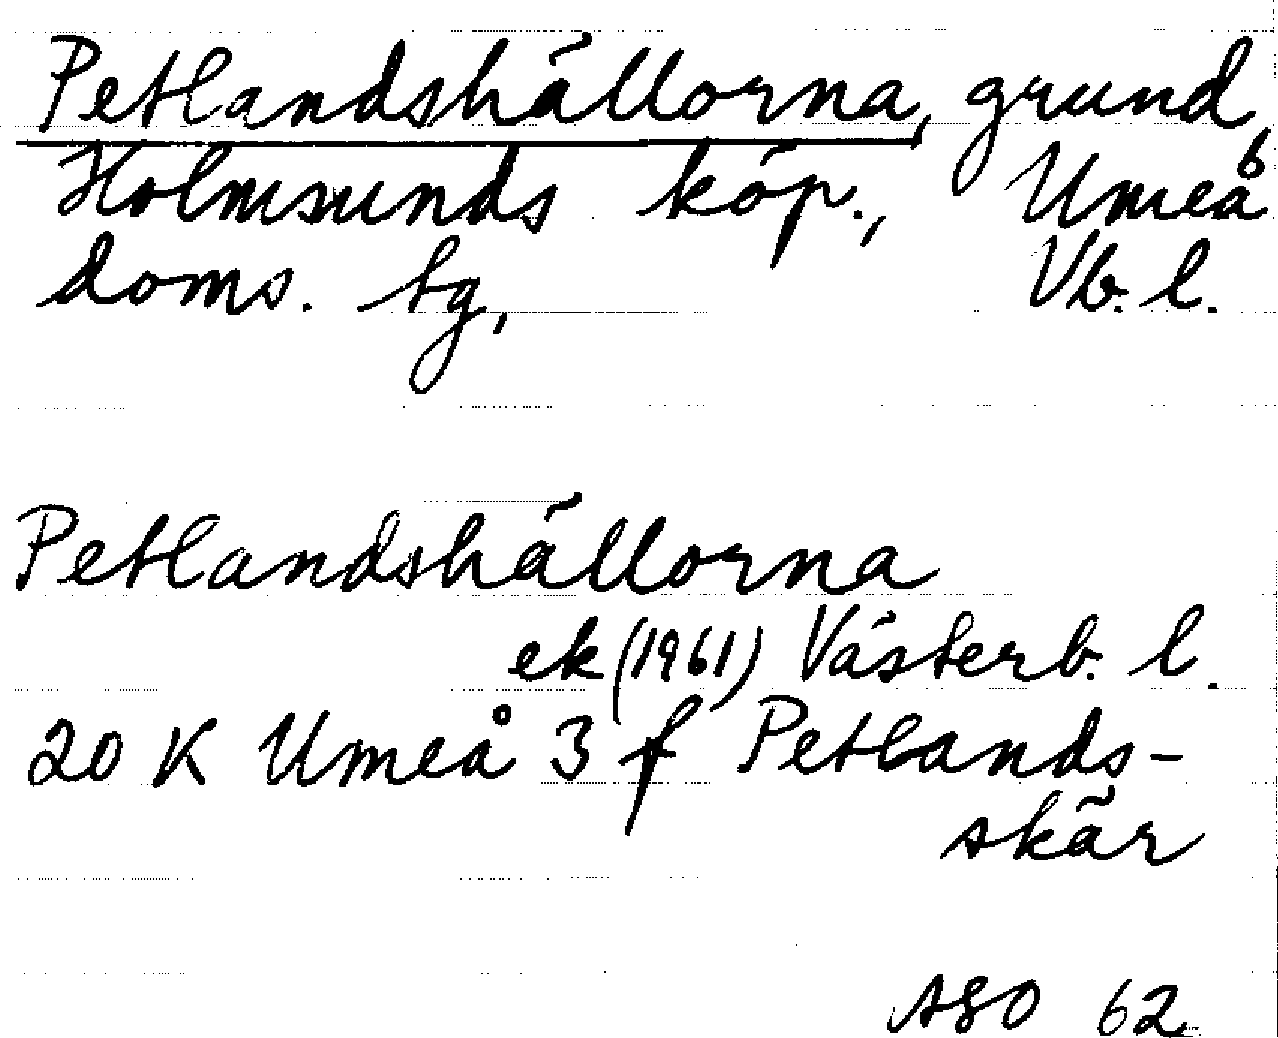 Petlandshällorna, grund,
Holmsunds köp., Umeå
doms. tg, Vb. l.
Petlandshällorna
ek (1961) Västerb. l.
20 K Umeå 3 f Petlands-
skär
ASO 62